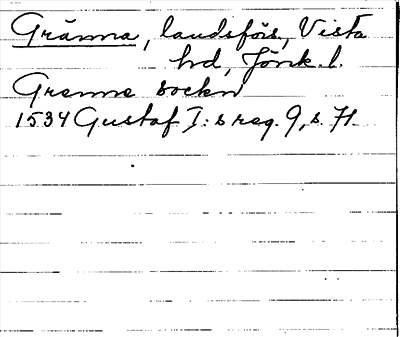 Gränna, landsförs., Vista
hd, Jönk. l.
Grenne sockn
1534 Gustaf I:s reg. 9, s. 71.